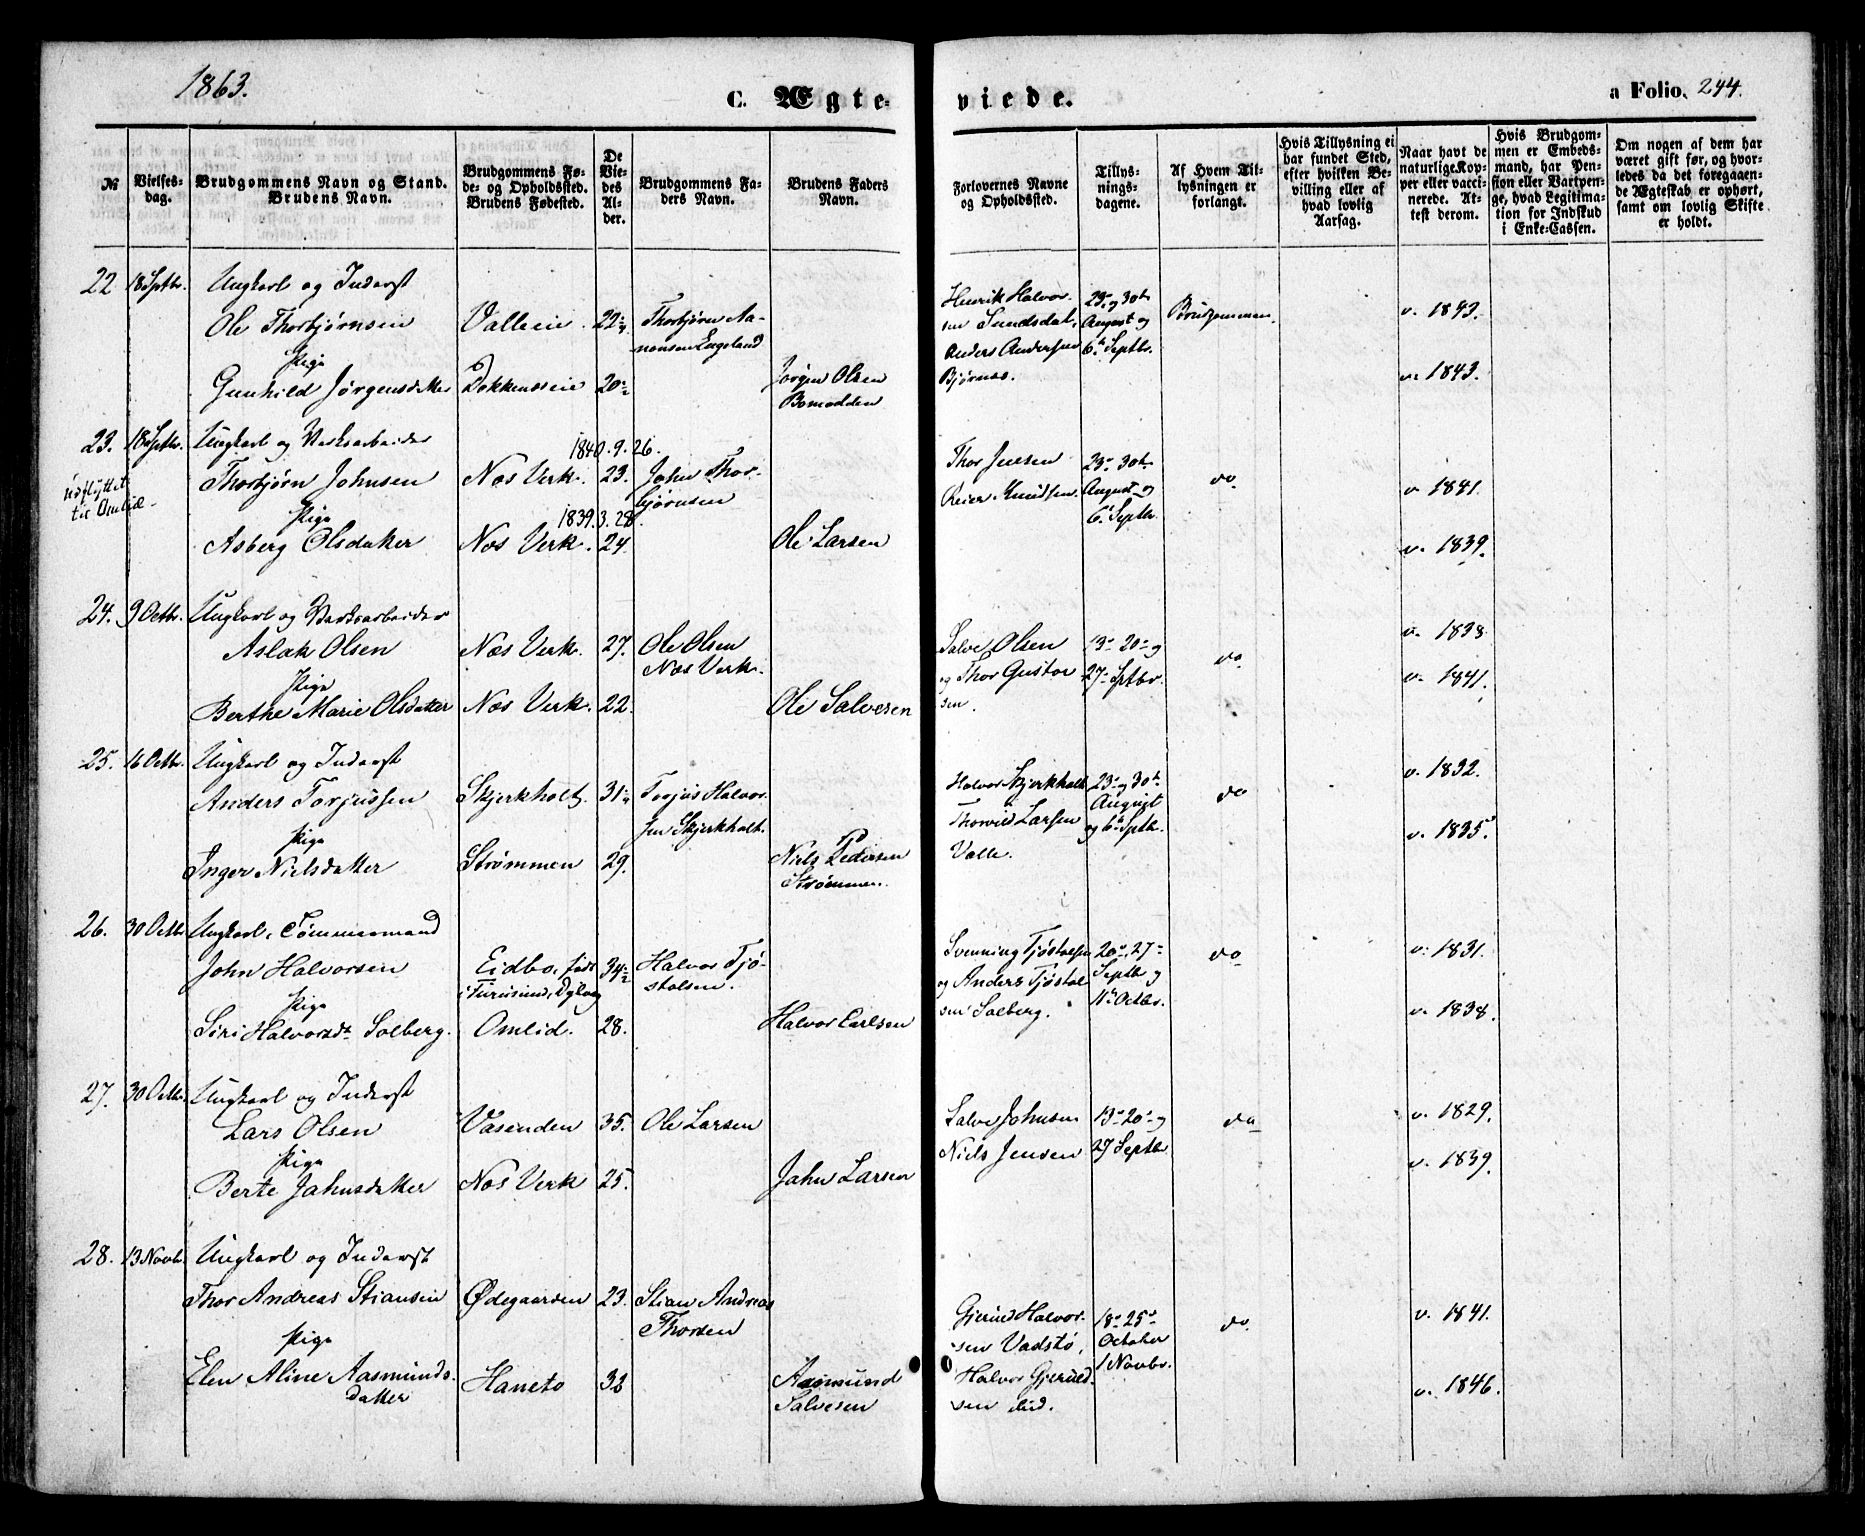 1863.
C. Ægteviede.
a Folio. 244.
№
Vielsesdag.
Brudgommens Navn og Stand. Brudens Navn.
Brudgommens Føde- og Opholdssted. Brudens Fødested.
De Viedes Alder.
Brudgommens Faders Navn.
Brudens Faders Navn.
Forlovernes Navne og Opholdssted.
Tillysningsdagene.
Af Hvem Tillysningen er forlangt.
Hvis Tillysning ei har fundet Sted, efter hvilken Bevilling eller af hvad lovlig Aarsag.
Naar havt de naturlige Kopper eller vaccinerede. Attest derom.
Hvis Brudgommen er Embedsmand, har Pension eller Vartpenge, hvad Legitimation for Indskud i Enke-Cassen.
Om nogen af dem har været gift før, og hvorledes da det foregaaende Ægteskab er ophørt, samt om lovlig Skifte er holdt.
22 18 Septbr. Ungkarl og Inderst
Ole Thorbjørnsen Valleeie. 22 Thorbjørn Aanonsen Engeland
Pige
Gunhild Jørgensdatter Dokkenseie 20 Jørgen Olsen Bomodden
Henrik Halvorsen Sundsdal, Anders Andersen Bjørnaas.
23 og 30te August og 6te Septbr.
Brudgommen.
v. 1843.
v. 1843.
23. 18 Septbr. Ungkarl og Værksarbeider
udflyttet til Omlid
1840.9.26.
Thorbjørn Johnsen Næs Verk. 23. John Thorbjørnsen
Pige
1839.3.28.
Asberg Olsdatter Næs Verk. 24. Ole Larsen
Thor Jensen
Reier Knudsen.
23 30te August og 6te Septbr.
do
v. 1841.
v. 1839.
24. 9 Octbr. Ungkarl og Værksarbeider
Aslak Olsen Næs Verk. 27. Ole Olsen Næs Verk.
Pige
Berthe Marie Olsdatter Næs Verk. 22. Ole Salvesen
Salve Olsen og Thor Gustavsen.
13 20 og 27 Septbr.
do
v. 1838.
v. 1841.
25. 16 Octbr. Ungkarl og Inderst
Anders Torjussen Skjerkholt. 31 Torjus Halvorsen Skjerkholt.
Pige
Inger Nielsdatter Strømmen 29. Niels Pedersen Strømmen.
Halvor Skjerkholt
Thorvild Larsen Valle.
23 og 30te August og 6te Septbr.
do
v. 1832.
v. 1835.
26. 30 Octbr Ungkarl, Tømmermand
John Halvorsen Eidbo, født i Furusund, Dybvaag 34 Halvor Tjøstolsen.
Pige
Siri Halvorsdt. Solberg. Omlid. 28. Halvor Carlsen
Svenning Tjøstolsen og Anders Tjøstolsen Solberg.
20 27 Septbr og 11te Octbr.
do
v. 1831.
v. 1838.
27. 30 Octbr. Ungkarl og Inderst
Lars Olsen Vasenden 35. Ole Larsen
Pige
Berte Jahnsdatter Næs Verk 25. Jahn Larsen
Salve Johnsen
Niels Jensen
13 20 og 27 Septbr
do
v. 1829.
v. 1839.
28. 13 Novbr. Ungkarl og Inderst
Thor Andreas Stiansen Ødegaarden 23. Stian Andreas Thorsen
Pige
Elen Aline Aasmundsdatter Haneto 33 Aasmund Salvesen
Gjeruld Halvorsen Vadstø, Halvor Gjeruldsen ibid.
18 25 October 1 Novbr.
do.
v. 1841.
v. 1846.